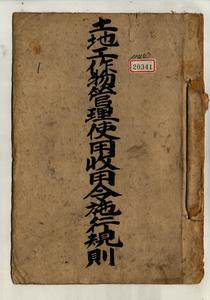 土地工作物管理使用收用令施行規則
20341